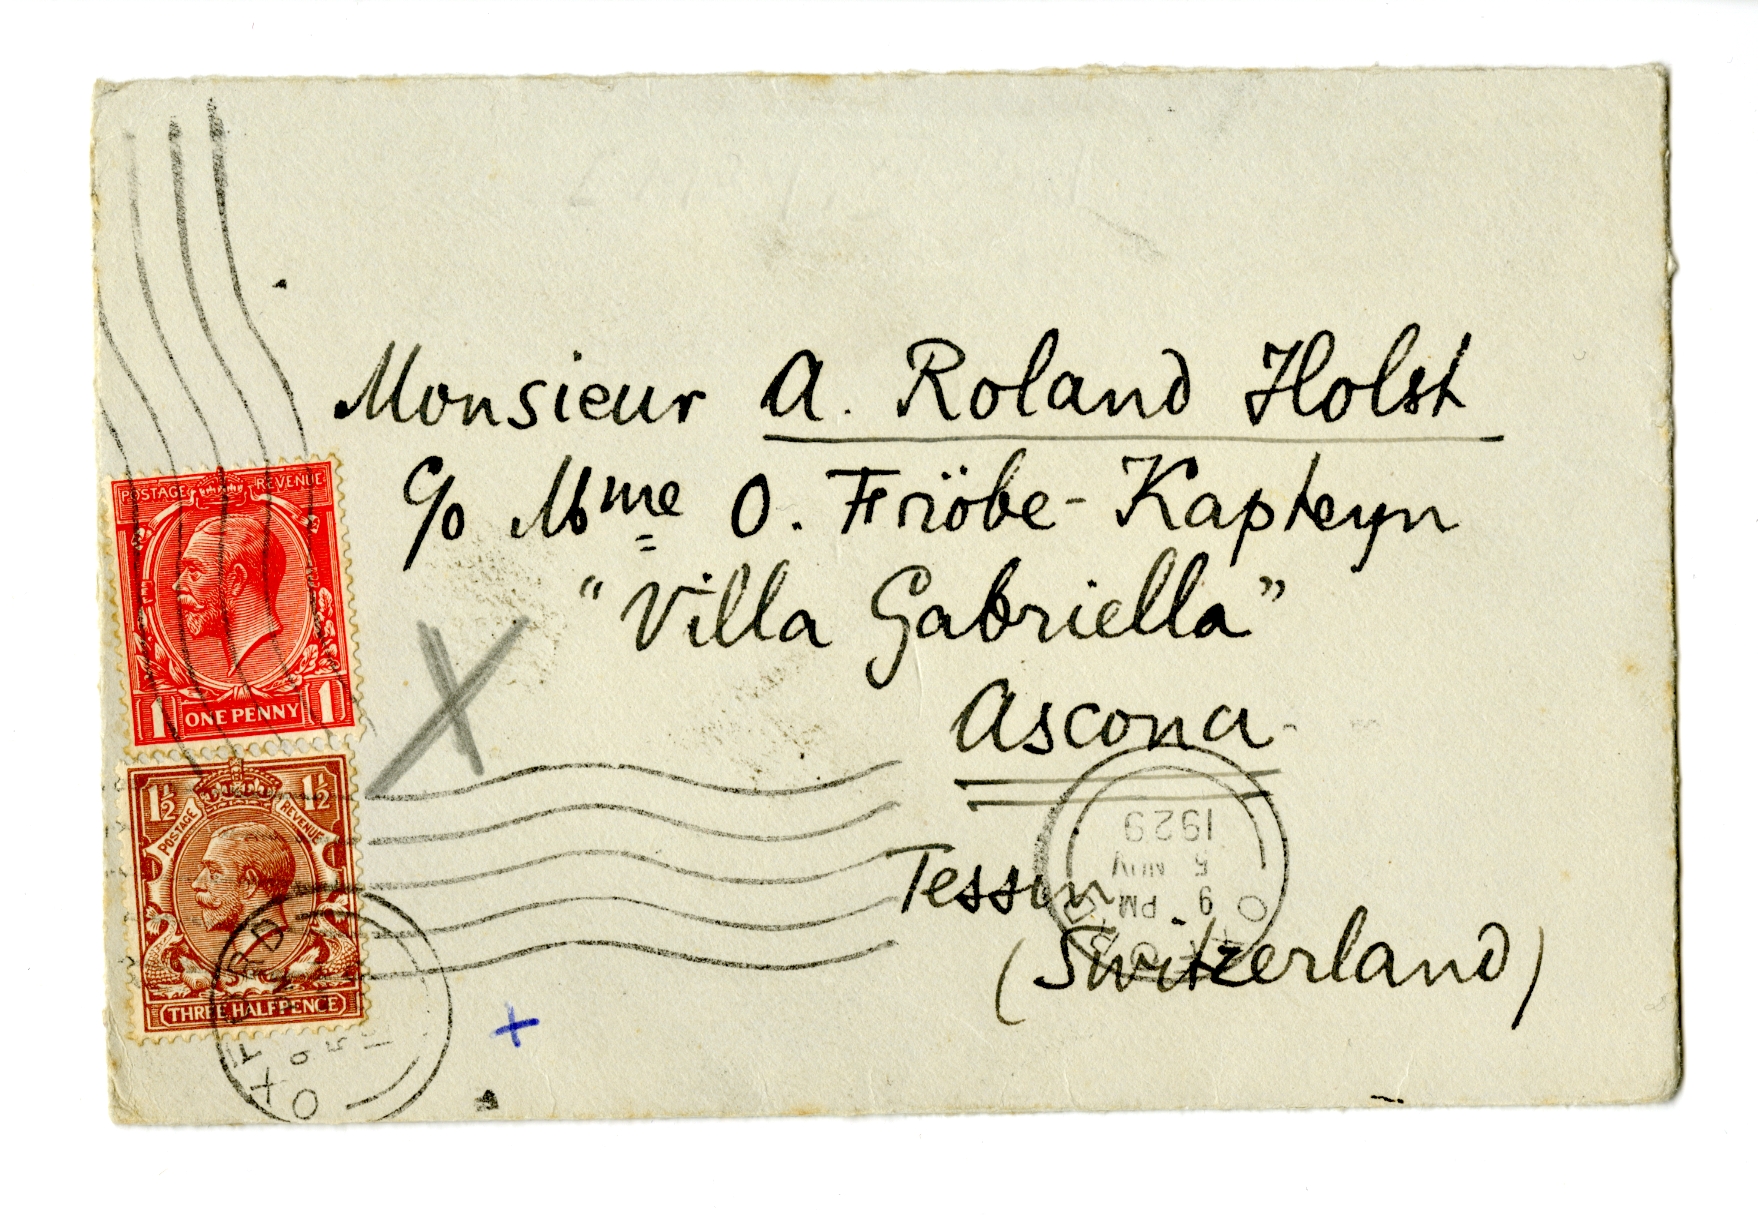 Monsieur A. Roland Holst
c/o Mme O. Fröbe-Kapteyn
"Villa Gabriella"
Ascona
Tessin
(Switzerland)
POSTAGE REVENUE
1 ONE PENNY 1
1½ 1½
POSTAGE REVENUE
THREE HALFPENCE
OXFORD
9 PM
5 NOV
1929